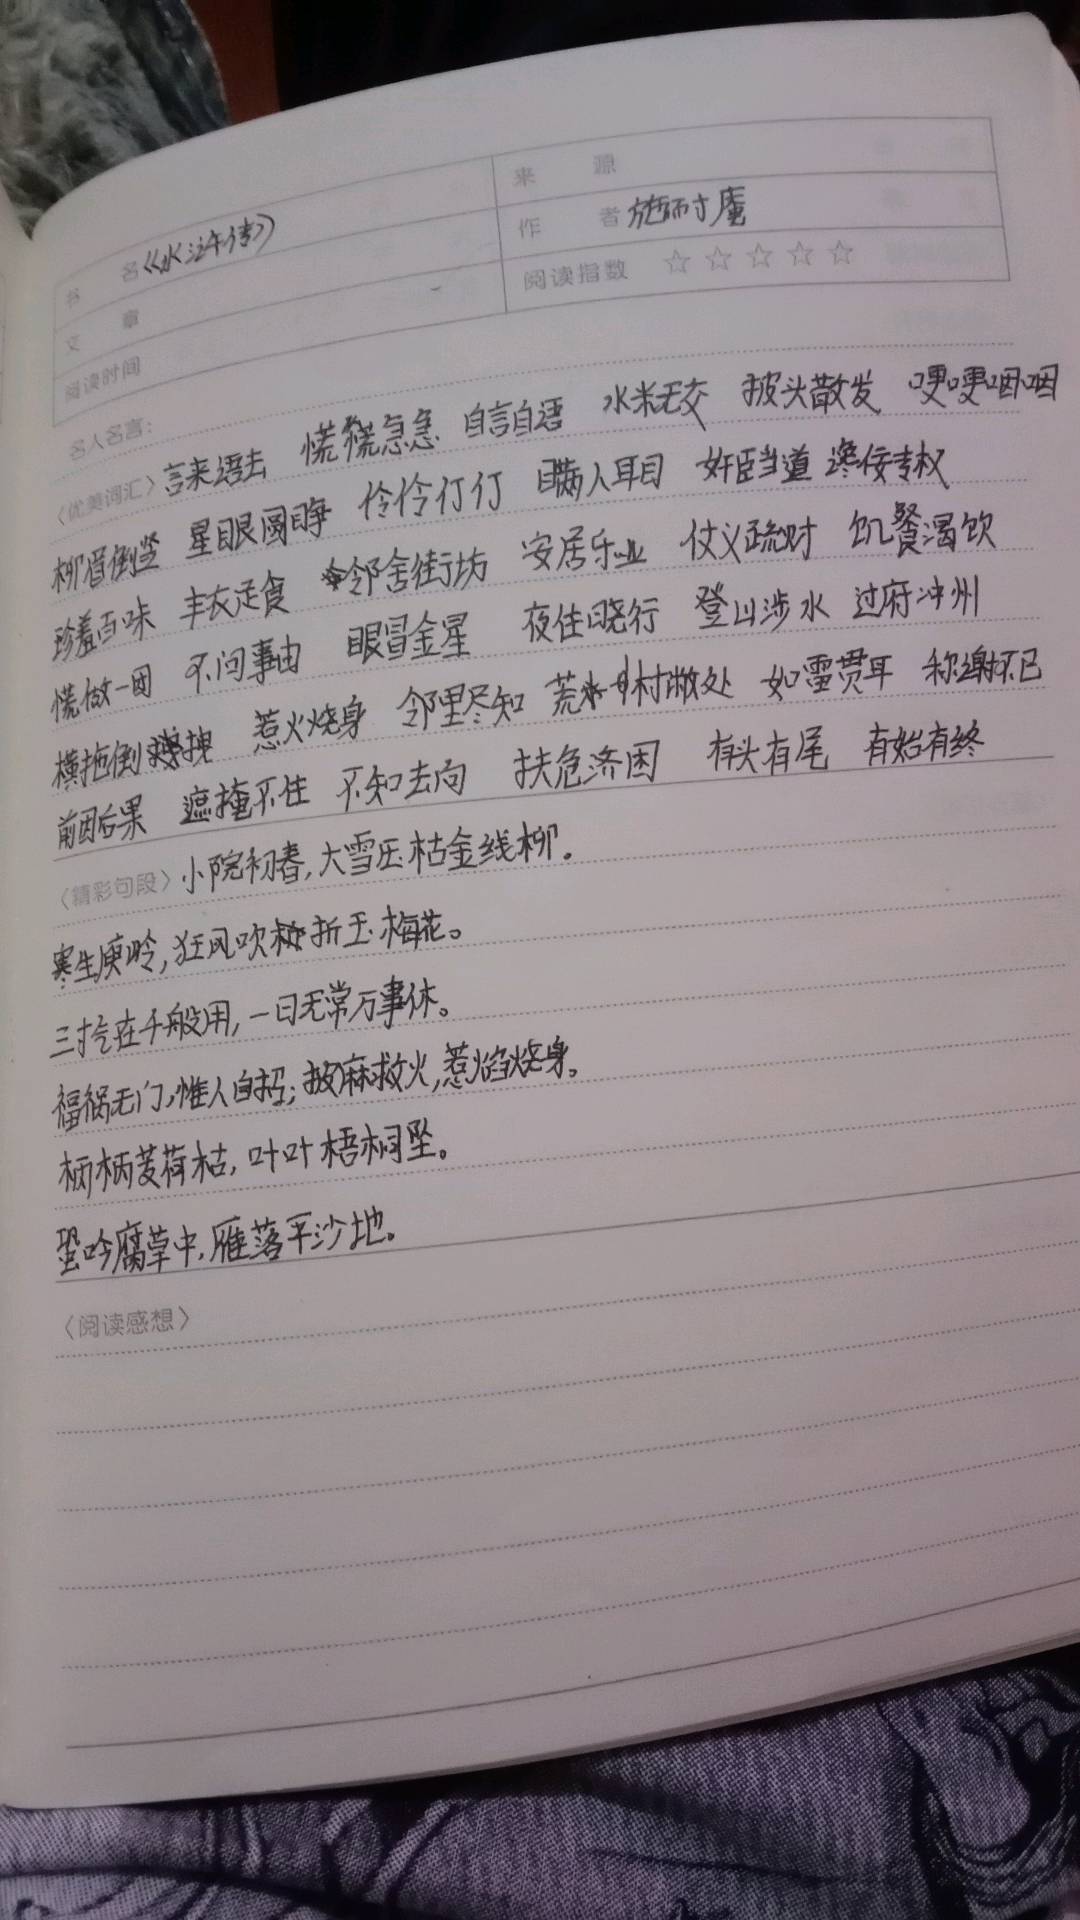 书 名 《水浒传》 来 源
文 章 作 者 施耐庵
阅读时间 阅读指数 ☆ ☆ ☆ ☆ ☆
名人名言:
〈优美词汇〉言来语去 慌慌急急 自言自语 水米无交 披头散发 哽哽咽咽
柳眉倒竖 星眼圆睁 伶伶仃仃 瞒人耳目 奸臣当道 谗佞专权
珍羞百味 丰衣足食 邻舍街坊 安居乐业 仗义疏财 饥餐渴饮
慌做一团 不问事由 眼冒金星 夜住晓行 登山涉水 过府冲州
横拖倒拽 惹火烧身 邻里尽知 荒村敝处 如雷贯耳 称谢不已
前因后果 遮掩不住 不知去向 扶危济困 有头有尾 有始有终
〈精彩句段〉小院初春,大雪压枯金线柳。
寒生庾岭,狂风吹折玉梅花。
三寸气在千般用,一日无常万事休。
福祸无门,惟人自招;披麻救火,惹焰烧身。
柄柄芰荷枯,叶叶梧桐坠。
蛩吟腐草中,雁落平沙地。
〈阅读感想〉